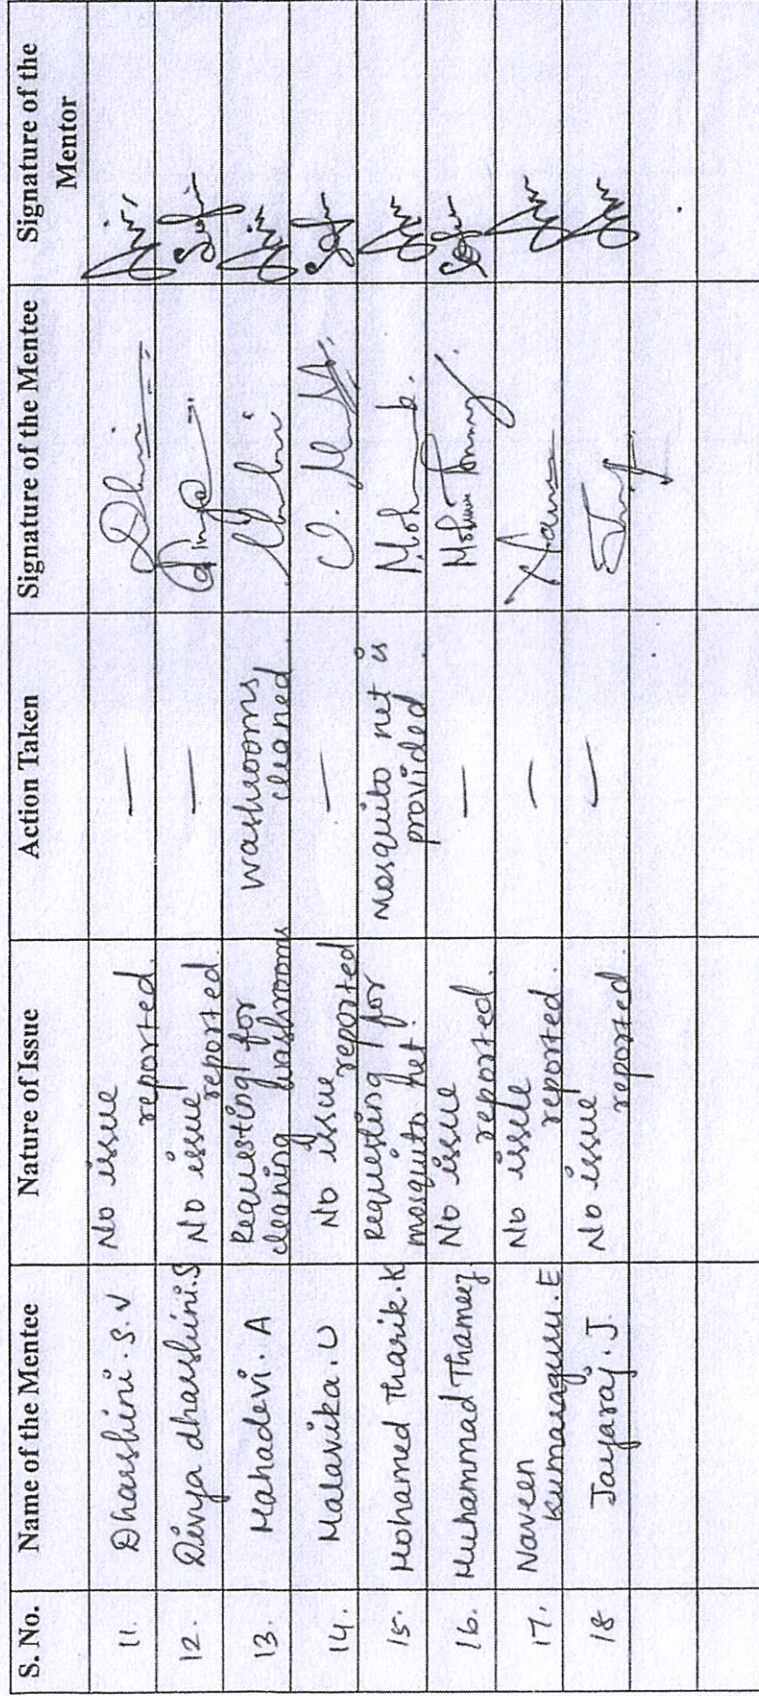 S. No. Name of the Mentee Nature of Issue Action Taken Signature of the Mentee Signature of the Mentor
11. Dharshini . S . V No issue reported. —
12. Divya dharshini.S No issue reported. —
13. Mahadevi . A Requesting for cleaning washrooms washrooms cleaned.
14. Malavika . U No issue reported —
15. Mohamed Tharik . K Requesting for mosquito net. Mosquito net is provided.
16. Muhammad Thameez. No issue reported. —
17. Naveen Kumaraguru . E No issue reported. —
18 Jayaraj . J. No issue reported. —